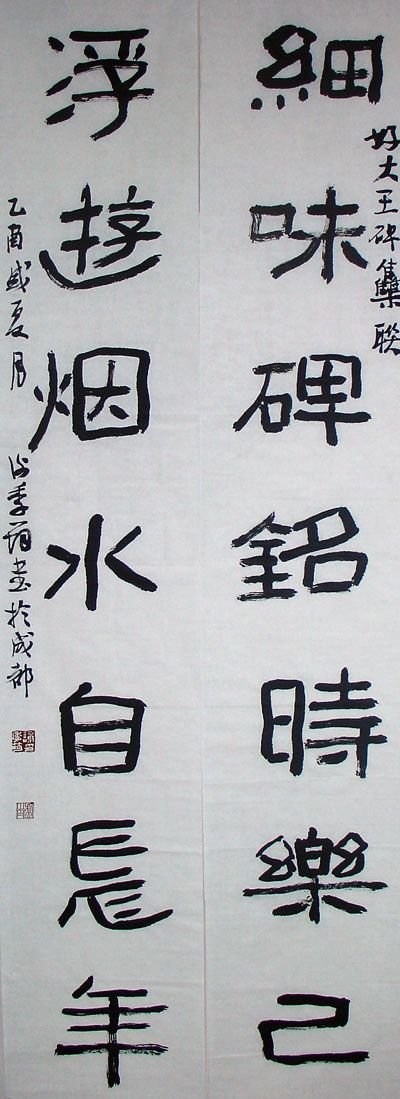 好大王碑集聯
細味碑銘時樂己
浮遊烟水自長年
乙酉盛夏月 謝季筠书於成都